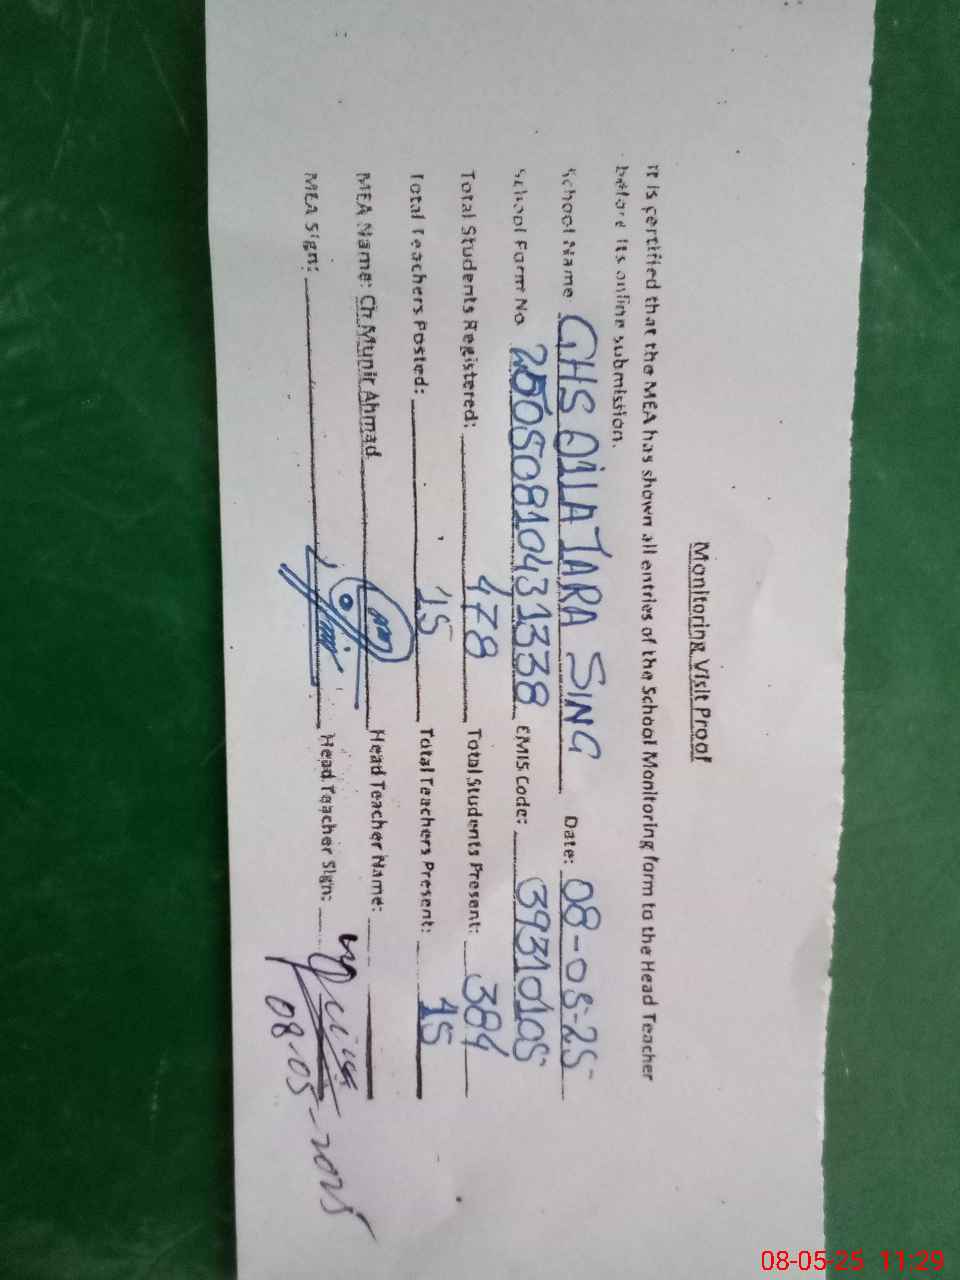 Monitoring Visit Proof
It is certified that the MEA has shown all entries of the School Monitoring form to the Head Teacher
before its online submission.
School Name GHS TARA SING Date: 08-05-25
School Form No 2505081043 1338 EMIS Code: 39310105
Total Students Registered: 478 Total Students Present: 384
Total Teachers Posted: 15 Total Teachers Present: 15
MEA Name: Ch Munir Ahmad Head Teacher Name:
MEA Sign: Head Teacher Sign:
08-05-2025
08-05-25 11:29